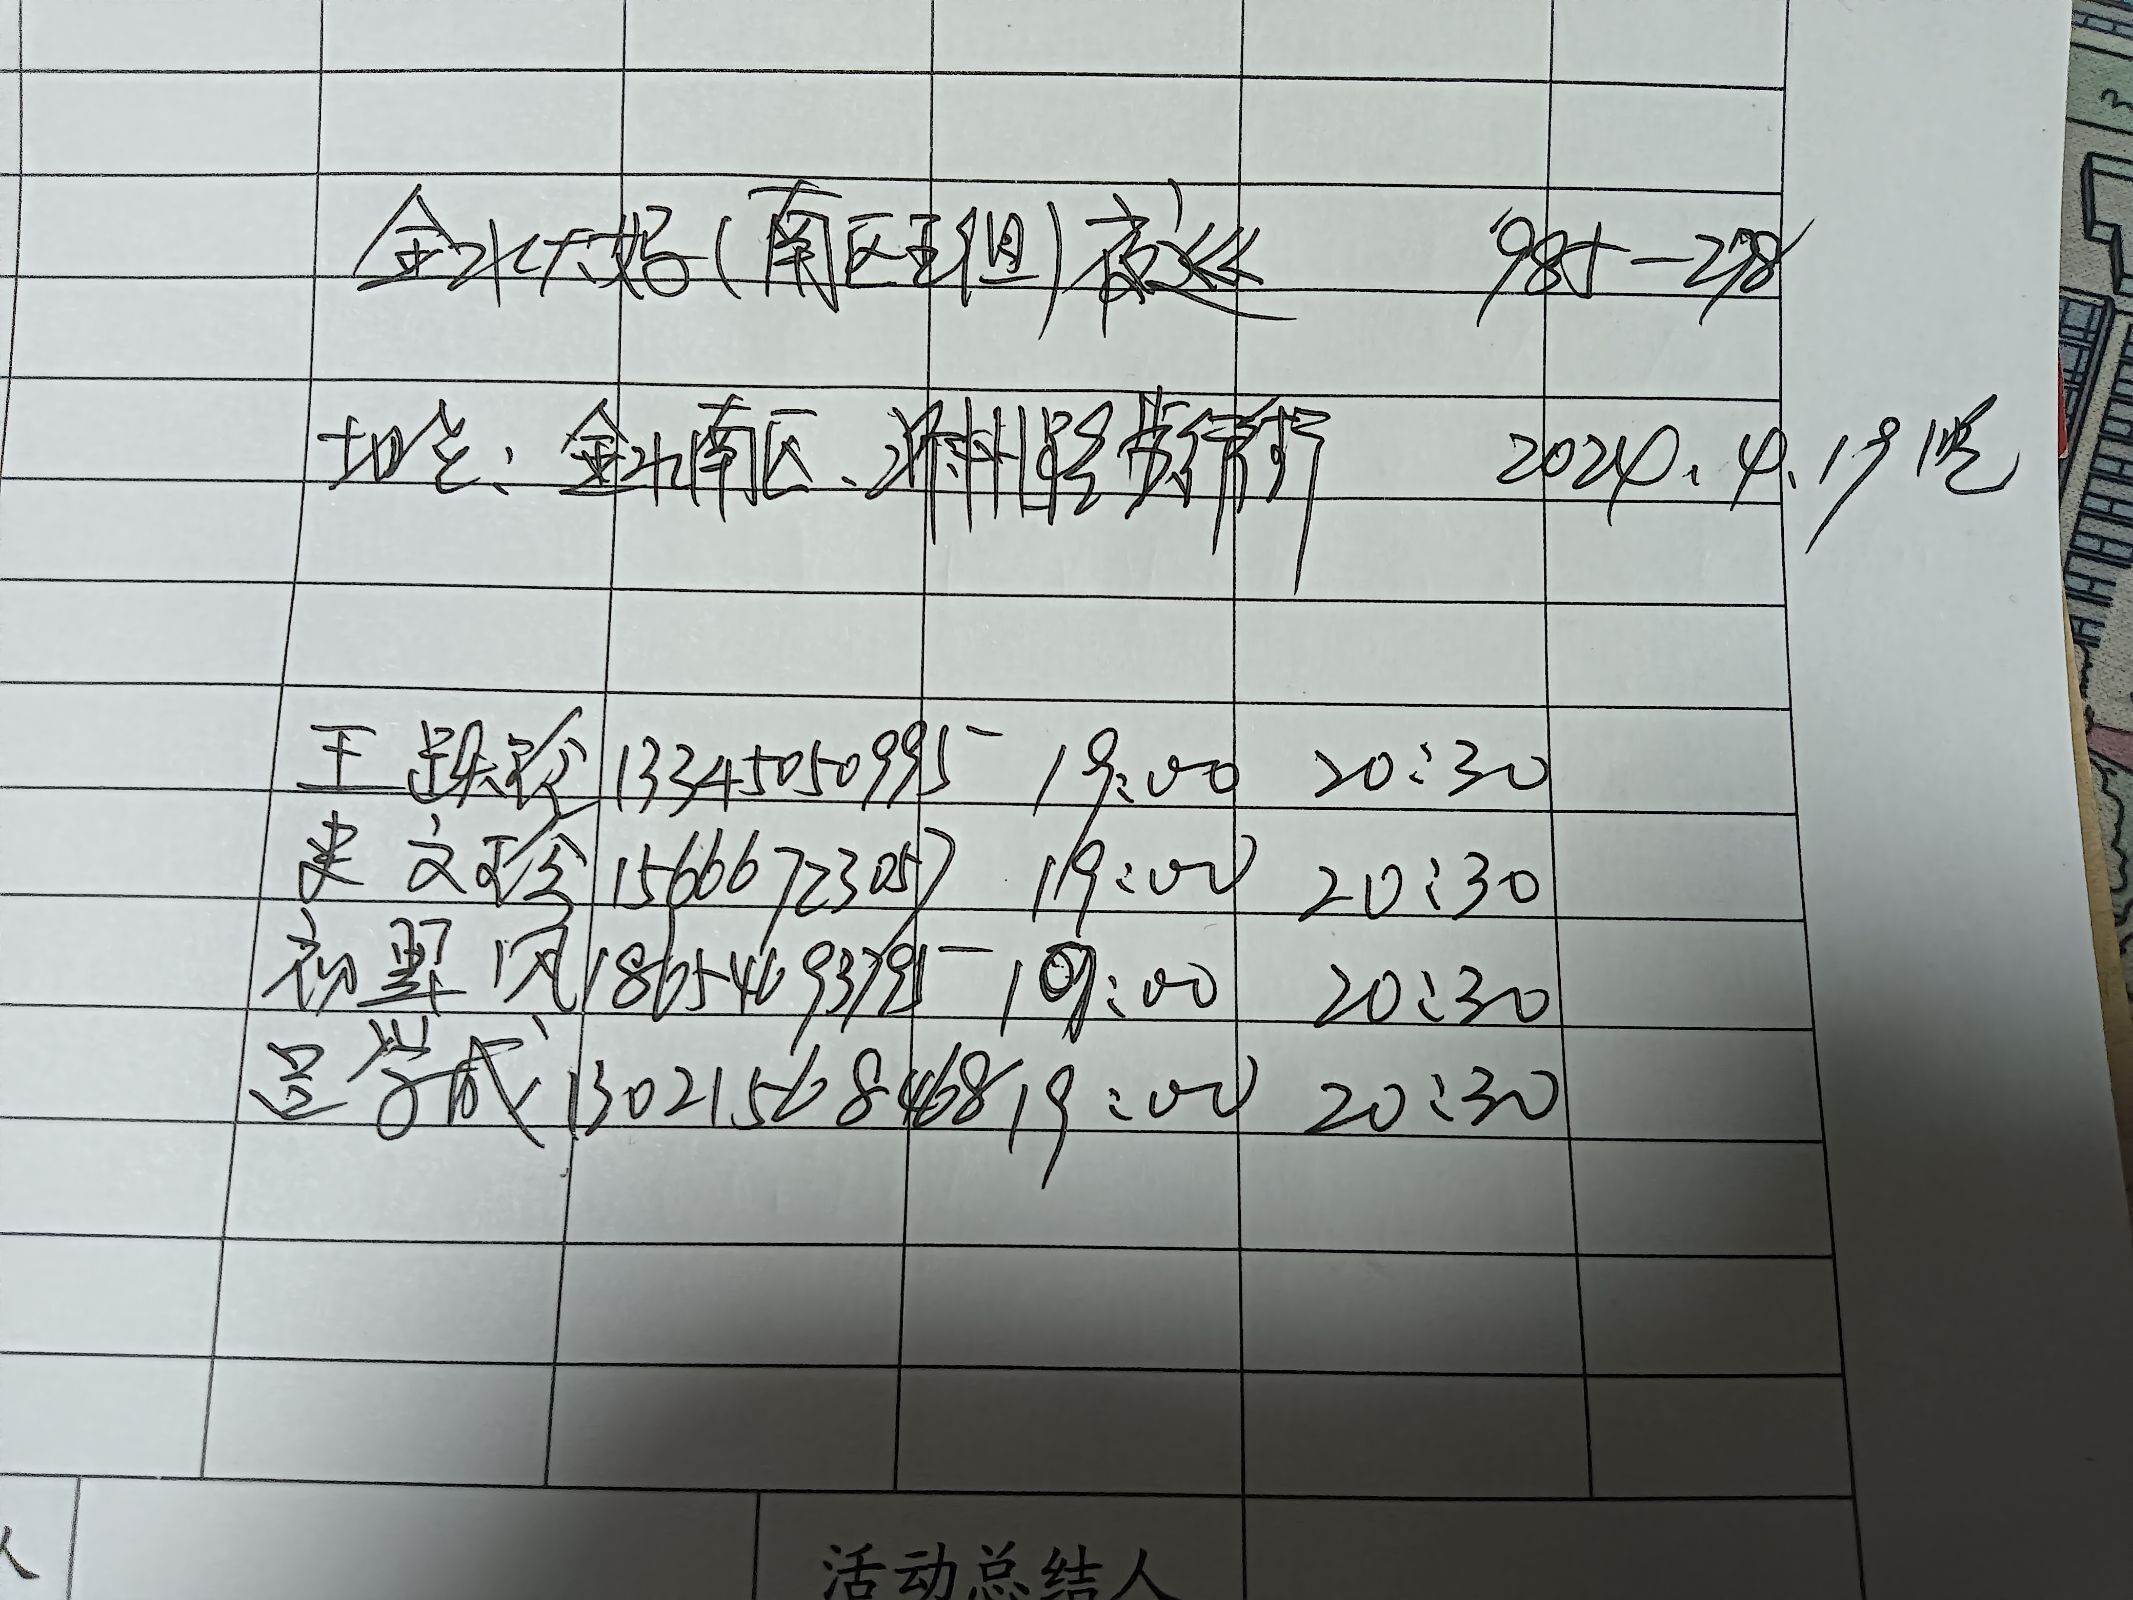 金水大妈(南区王组)夜巡 985-278
地点:金水南区、 2024.4.19晚
王跃珍 13345050995 19:00 20:30
史文珍 15666723057 19:00 20:30
初翠凤 18654693795 19:00 20:30
宣学成 13021568468 19:00 20:30
人
活动总结人